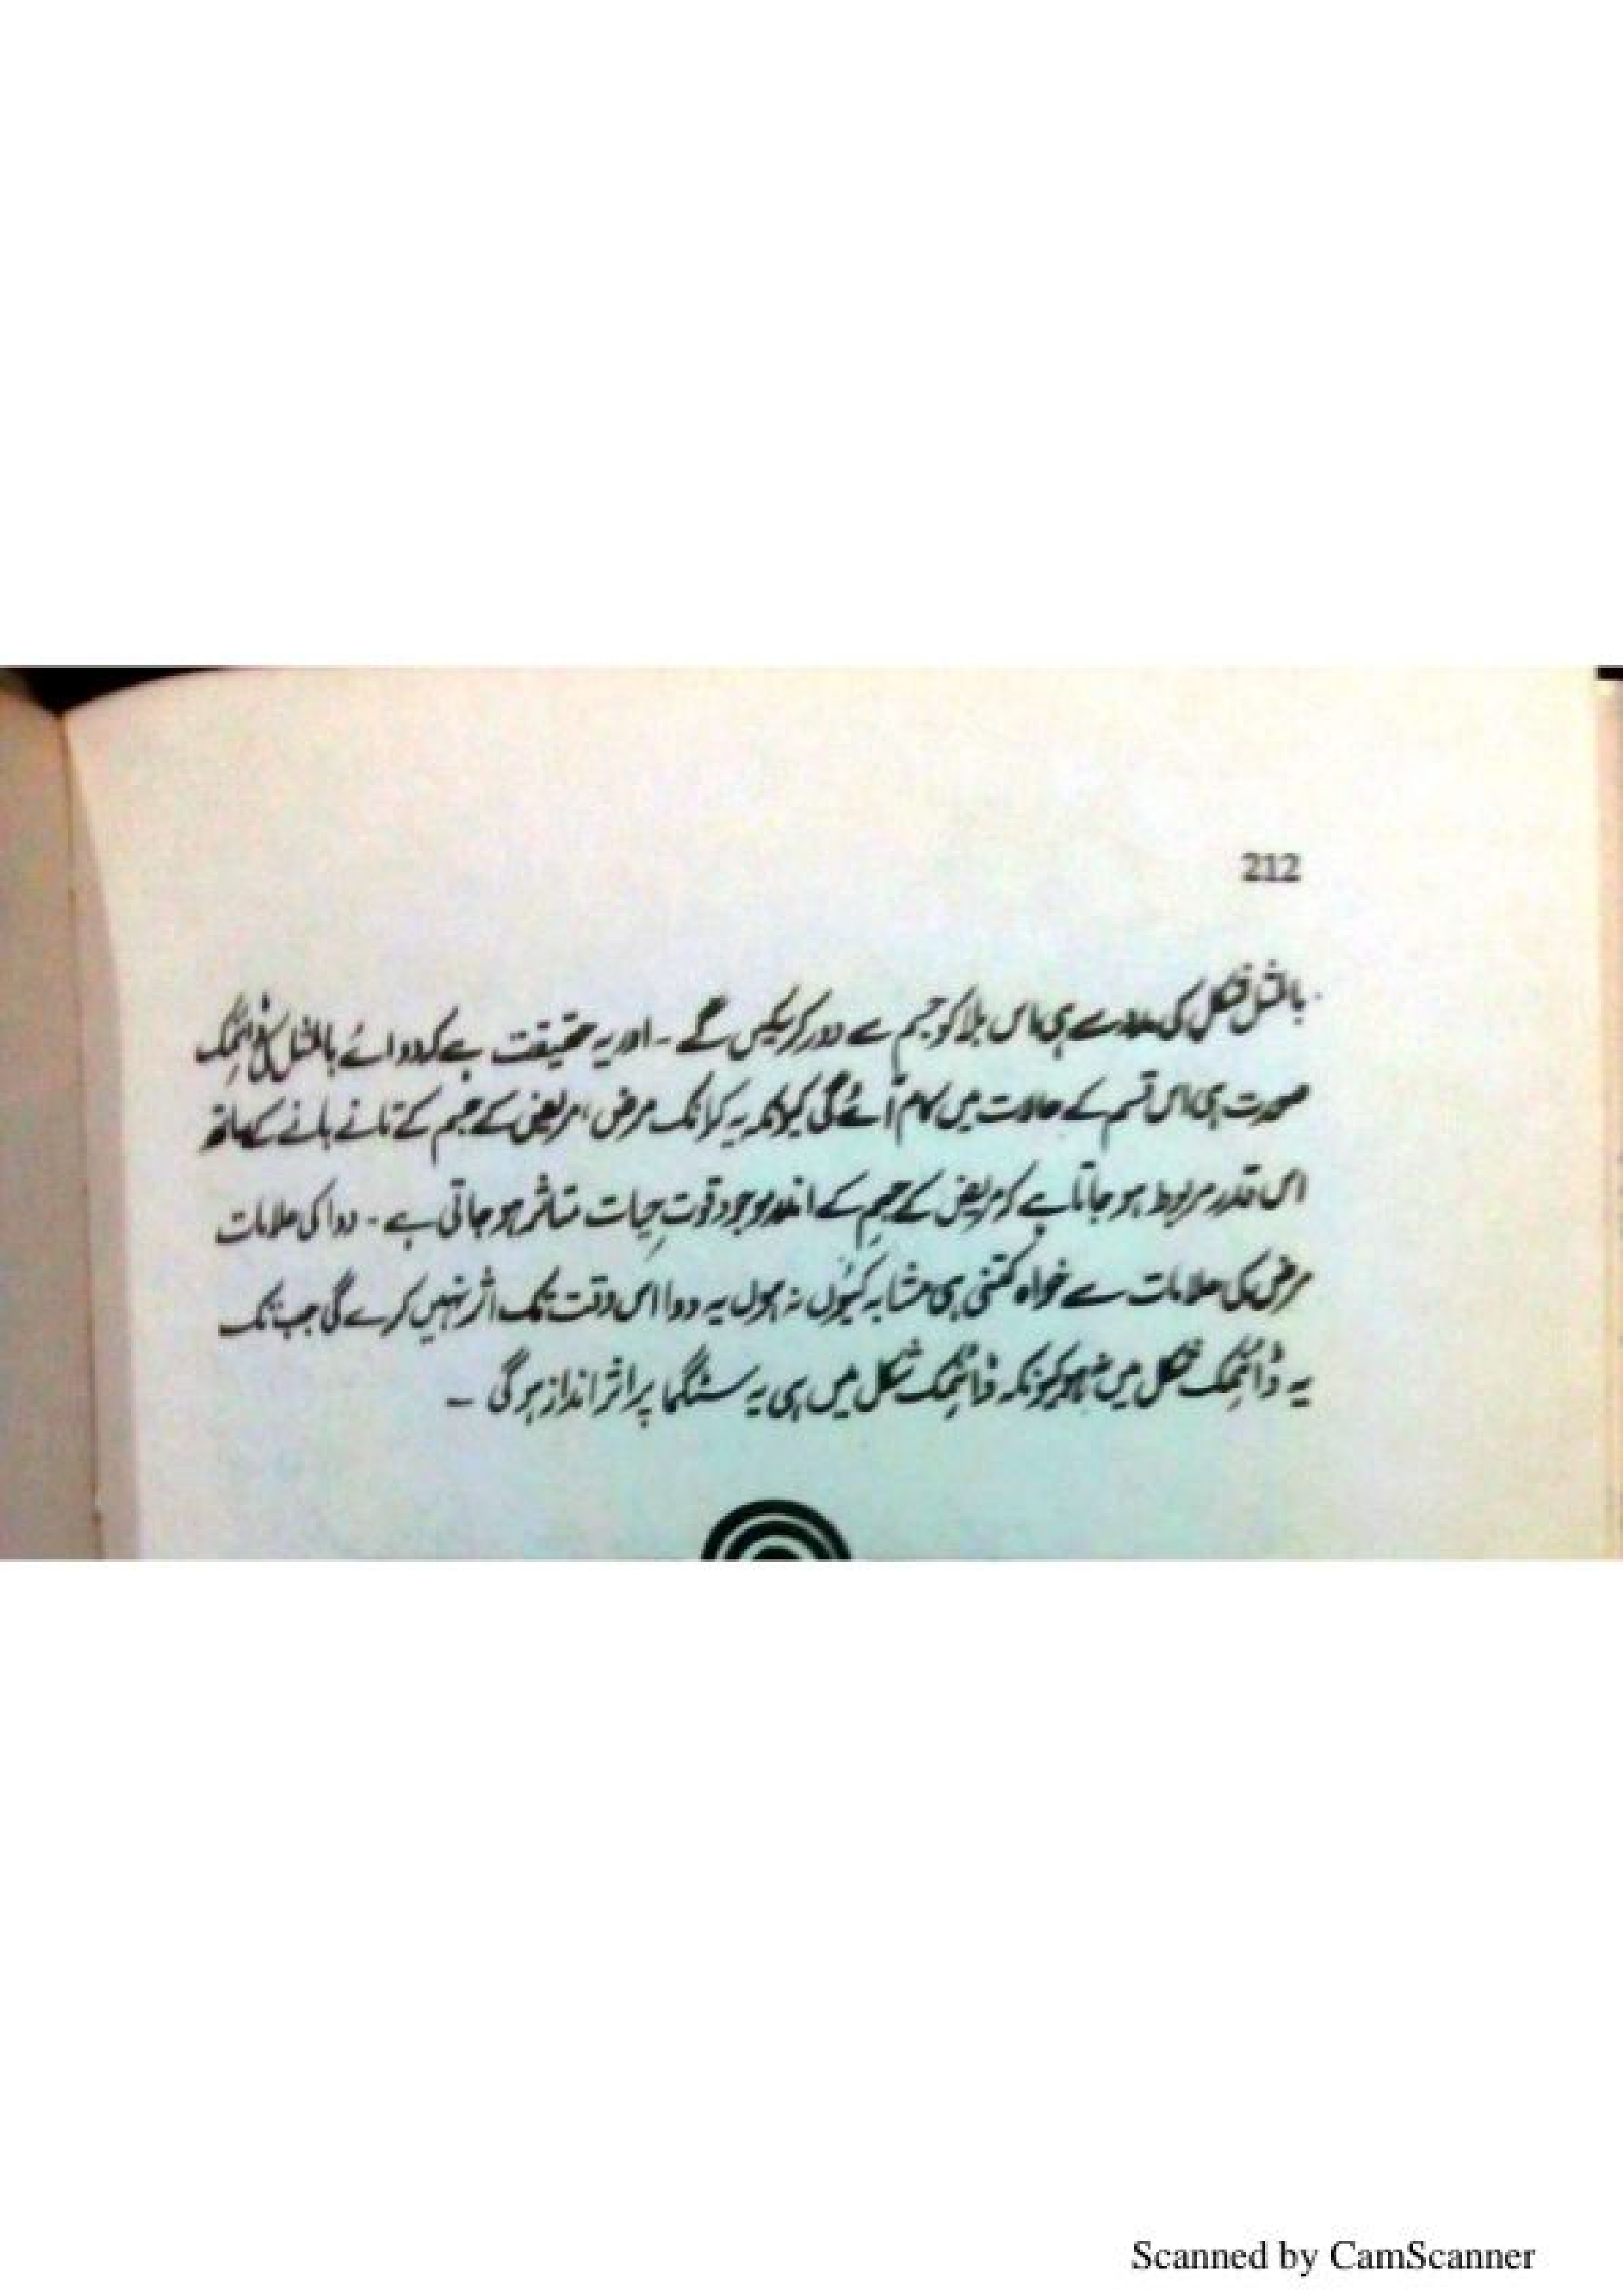 212
بالمثل شکل کی مدد سے ہی اس بلا کو جسم سے دور کر سکیں گے ۔ اور یہ حقیقت ہے کہ دوائے بالمثل
صورت ہی اس قسم کے حالات میں کام آئے گی کیونکہ یہ کرانک مرض، مریض کے جسم کے تانے بانے کے ساتھ
اس قدر مربوط ہو جاتا ہے کہ مریض کے جسم کے اندر موجود قوتِ حیات متاثر ہو جاتی ہے ۔ دوا کی علامات
مرض کی علامات سے خواہ کتنی ہی مشابہ کیوں نہ ہوں یہ دوا اس وقت تک اثر نہیں کرے گی جب تک
یہ ڈائنمک شکل میں نہ ہو کیونکہ ڈائنمک شکل میں ہی یہ سٹگما پر اثر انداز ہو گی ۔
Scanned by CamScanner